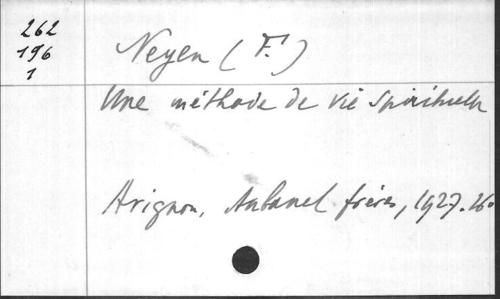 262
196
1
Neyen (F.)
Une méthode de vie spirituelle
Avignon, Aubanel frères, 1927. 16º